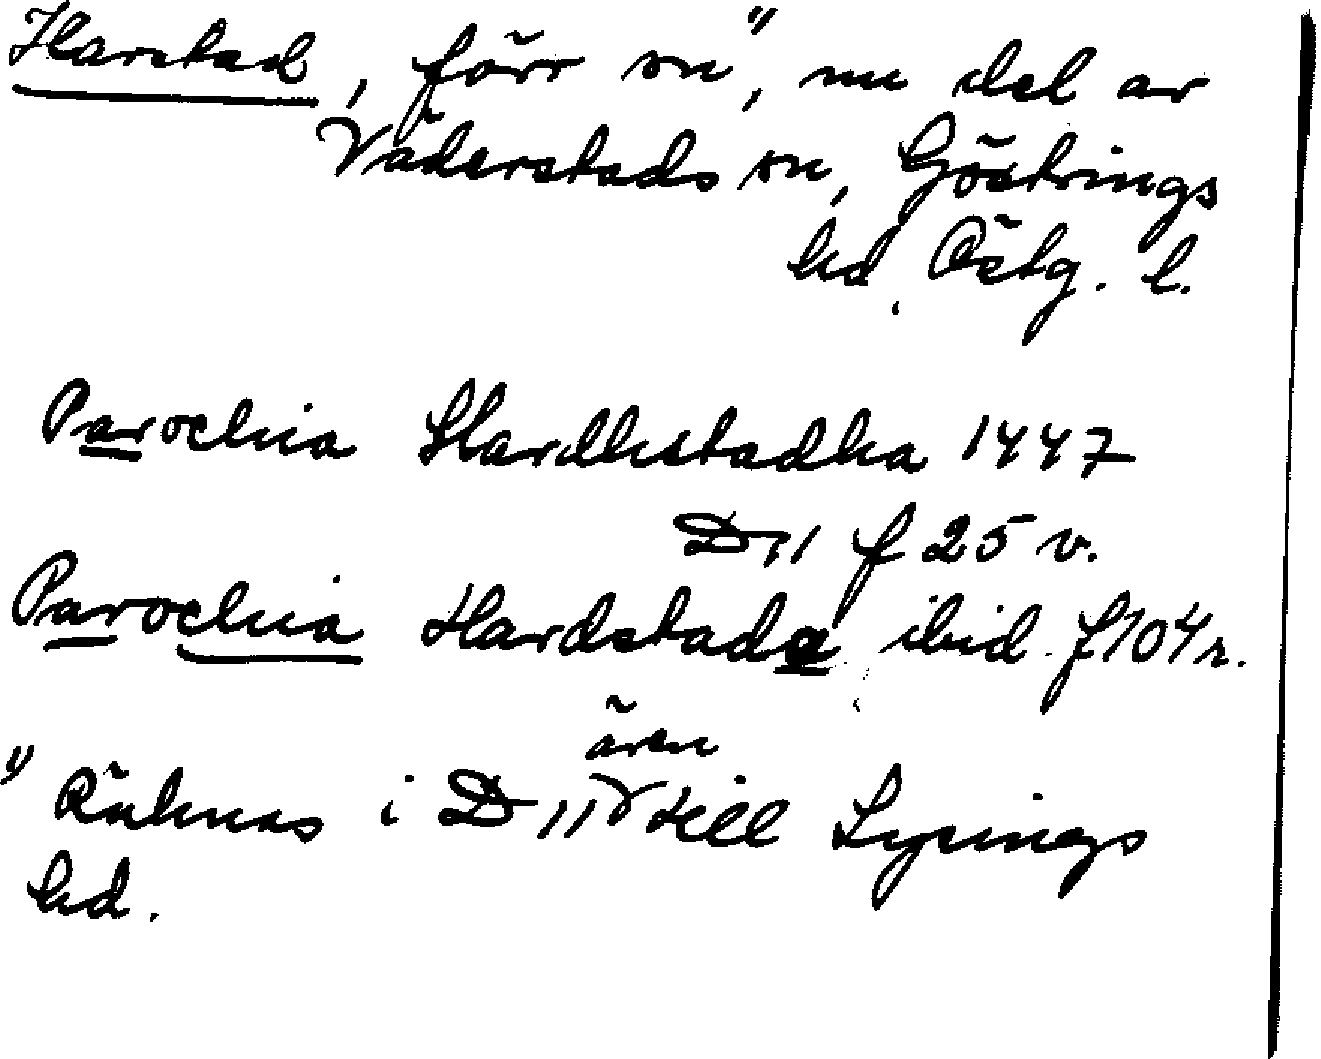 Harstad, förr sn", nu del av
Väderstads sn, Göstrings
hd, Östg. l.
Parochia Hardhstadha 1447
D 11 f 25 v.
Parochia Hardstada ibid. f 104 r.
även
") Räknas i D 11 till Lysings
hd.